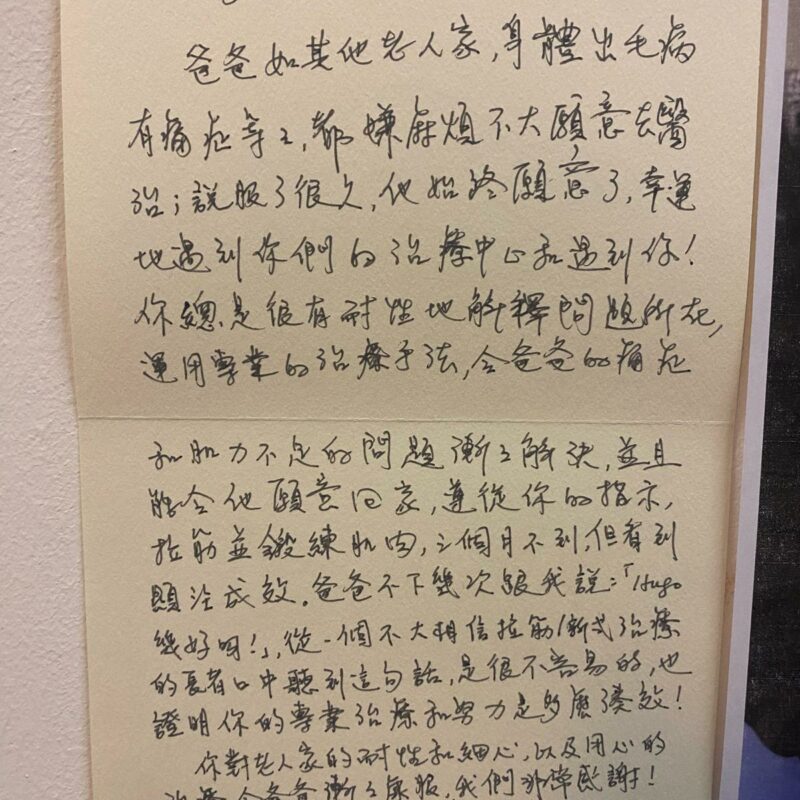 爸爸如其他老人家,身體出毛病
有痛症等等,都嫌麻煩不大願意去醫
治;說服了很久,他始終願意了,幸運
地遇到你們的治療中心和遇到你!
你總是很有耐性地解釋問題所在,
運用專業的治療手法,令爸爸的痛症
和肌力不足的問題漸漸解決,並且
能令他願意回家,遵從你的指示,
拉筋並鍛練肌肉,三個月不到,但看到
顯注成效。爸爸不下幾次跟我說:「Hugo
幾好喎!」,從一個不大相信拉筋/新式治療
的長者口中聽到這句話,是很不容易的,也
證明你的專業治療和努力是多麼湊效!
你對老人家的耐性和細心,以及用心的
治療,令爸爸漸漸康服,我們非常感謝!